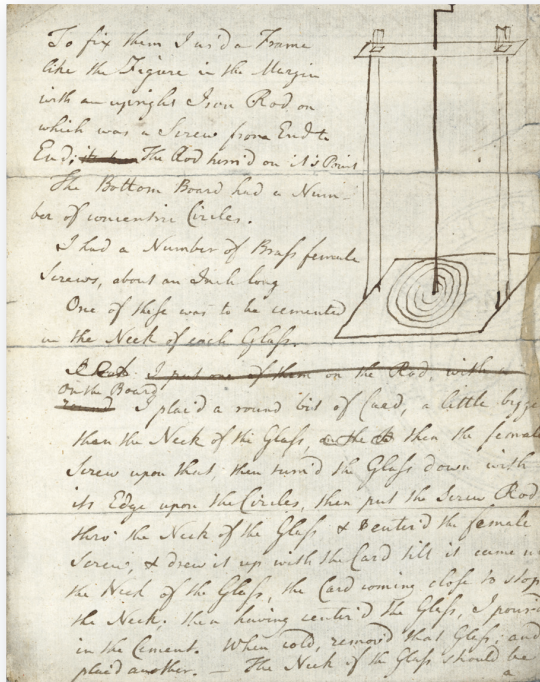 To fix them I us'd a Frame
like the Figure in the Margin
with an upright Iron Rod on
which was a Screw from End to
End; The Rod turn'd on it's Point
The Bottom Board had a Num-
ber of concentric Circles.
I had a Number of Brass female
Screws, about an Inch long
One of these was to be cemented
in the Neck of each Glass.
I put one of them on the Rod, with a
On the Board
round I plac'd a round bit of Card, a little bigge
than the Neck of the Glass, then the female
Screw upon that, then turn'd the Glass down with
its Edge upon the Circles, then put the Screw Rod
thro' the Neck of the Glass & enter'd the female
Screw, & drew it up with the Card till it came
the Neck of the Glass, the Card coming close to stop
the Neck; then having center'd the Glass, I pour'd
in the Cement. When cold, remov'd that Glass; and
plac'd another. — The Neck of the Glass should be
a